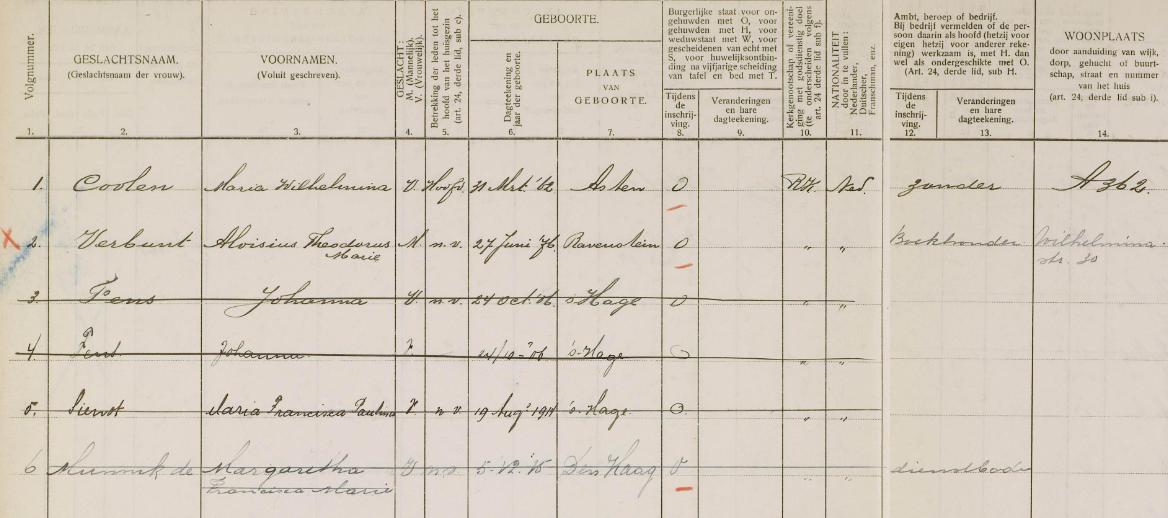 Volgnummer.
GESLACHTSNAAM.
(Geslachtsnaam der vrouw).
VOORNAMEN.
(Voluit geschreven).
GESLACHT:
M. (Mannelijk).
V. (Vrouwelijk).
Betrekking der leden tot het
hoofd van het huisgezin
(art. 24, derde lid, sub c).
GEBOORTE.
Dagteekening en
jaar der geboorte.
PLAATS
VAN
GEBOORTE.
Burgerlijke staat voor on-
gehuwden met O, voor
gehuwden met H, voor
weduwstaat met W, voor
gescheidenen van echt met
S, voor huwelijksontbin-
ding na vijfjarige scheiding
van tafel en bed met T.
Tijdens
de
inschrij-
ving.
Veranderingen
en hare
dagteekening.
Kerkgenootschap of vereeni-
ging met godsdienstig doel
(te onderscheiden volgens
art. 24, derde lid sub f).
NATIONALITEIT
door in te vullen:
Nederlander,
Duitscher,
Franschman, enz.
Ambt, beroep of bedrijf.
Bij bedrijf vermelden of de per-
soon daarin als hoofd (hetzij voor
eigen hetzij voor anderer reke-
ning) werkzaam is, met H. dan
wel als ondergeschikte met O.
(Art. 24, derde lid, sub H.
Tijdens
de
inschrij-
ving.
Veranderingen
en hare
dagteekening.
WOONPLAATS
door aanduiding van wijk,
dorp, gehucht of buurt-
schap, straat en nummer
van het huis
(art. 24, derde lid sub i).
1. 2. 3. 4. 5. 6. 7. 8. 9. 10. 11. 12. 13. 14.
1. Coolen Maria Wilhelmina V. Hoofd 31 Mrt. '62 Asten O RK. Ned. zonder A 362
2. Verbunt Aloisius Theodorus M n.v. 27 Juni '76 Ravenstein O " " Boekhouder Wilhelmina-
Marie str. 30
3. Fens Johanna V. n.v. 24 Oct. '06 's Hage O " "
4. Johanna V. 24/10-'06 's-Hage O " "
5. Maria Francisca Paulina V. n v. 19 Aug. 's-Hage O. " "
6 Munnik de Margaretha V n.v. 5-12-'15 Den Haag O " " dienstbode
Francisca Marie